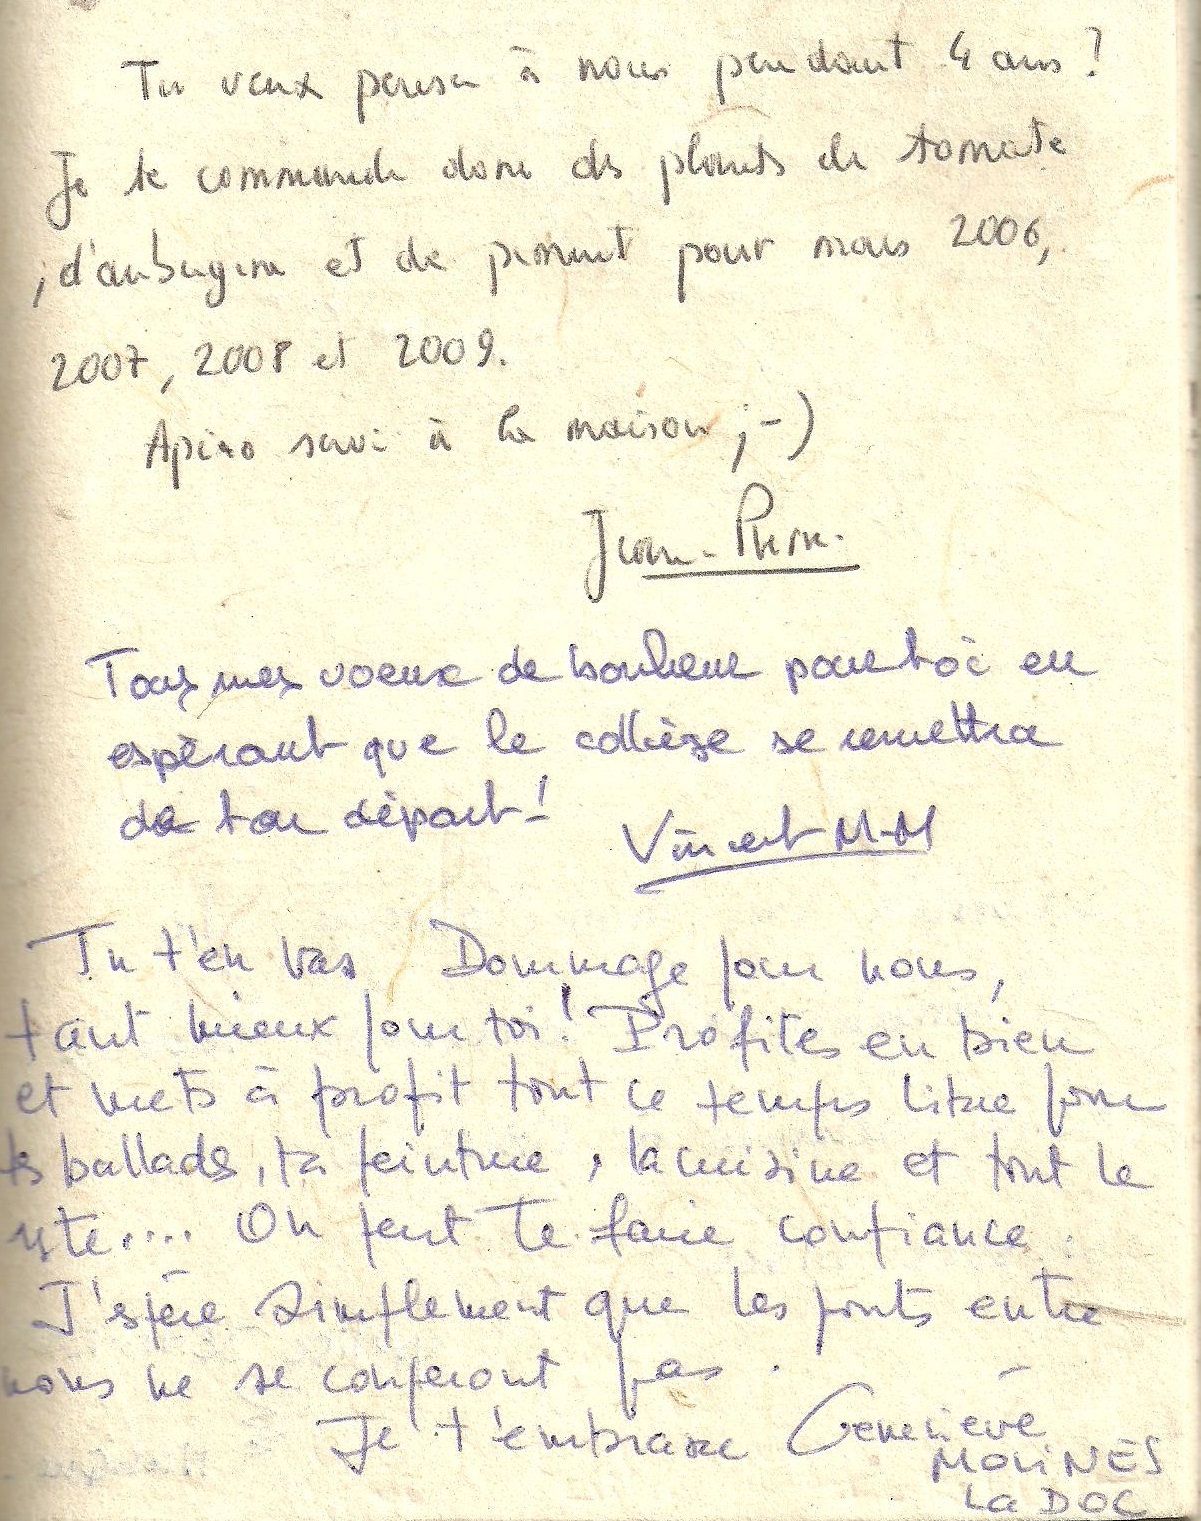 Tu veux penser à nous pendant 4 ans ?
Je te commande donc des plants de tomate
, d'aubergine et de piment pour mars 2006,
2007, 2008 et 2009.
Apéro servi à la maison ;-)
Jean-Pierre.
Tous mes voeux de bonheur pour toi en
espérant que le collège se remettra
de ton départ !
Vincent M-M
Tu t'en vas Dommage pour nous,
tant mieux pour toi ! Profites en bien
et mets à profit tout ce temps libre pour
tes ballades, ta peinture, la cuisine et tout le
reste.... On peut te faire confiance.
J'espère simplement que les ponts entre
nous ne se couperont pas.
Je t'embrasse Geneviève
MOLINES
La DOC